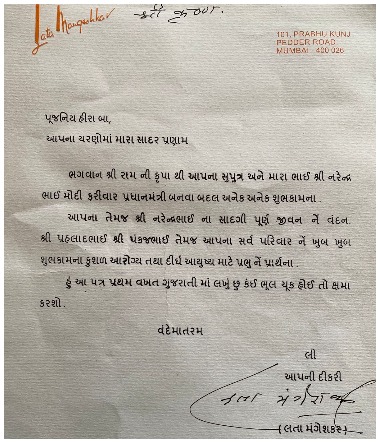 Lata Mangeshkar
શ્રી કૃષ્ણ
101, PRABHU KUNJ
PEDDER ROAD
MUMBAI - 400 026
પૂજનિય હીરા બા,
આપના ચરણોમાં મારા સાદર પ્રણામ
ભગવાન શ્રી રામ ની કૃપા થી આપના સુપુત્ર અને મારા ભાઈ શ્રી નરેન્દ્ર
ભાઈ મોદી ફરીવાર પ્રધાનમંત્રી બનવા બદલ અનેક અનેક શુભકામના.
આપના તેમજ શ્રી નરેન્દ્રભાઈ ના સાદગી પૂર્ણ જીવન નેં વંદન.
શ્રી પ્રહલાદભાઈ શ્રી પંકજભાઈ તેમજ આપના સર્વ પરિવાર નેં ખુબ ખુબ
શુભકામના કુશળ આરોગ્ય તથા દીર્ઘ આયુષ્ય માટે પ્રભુ નેં પ્રાર્થના.
હું આ પત્ર પ્રથમ વખત ગુજરાતી માં લખું છુ કંઈ ભૂલ ચૂક હોઈ તો ક્ષમા
કરશો.
વંદેમાતરમ
લી
આપની દીકરી
લતા મંગેશકર
(લતા મંગેશકર)